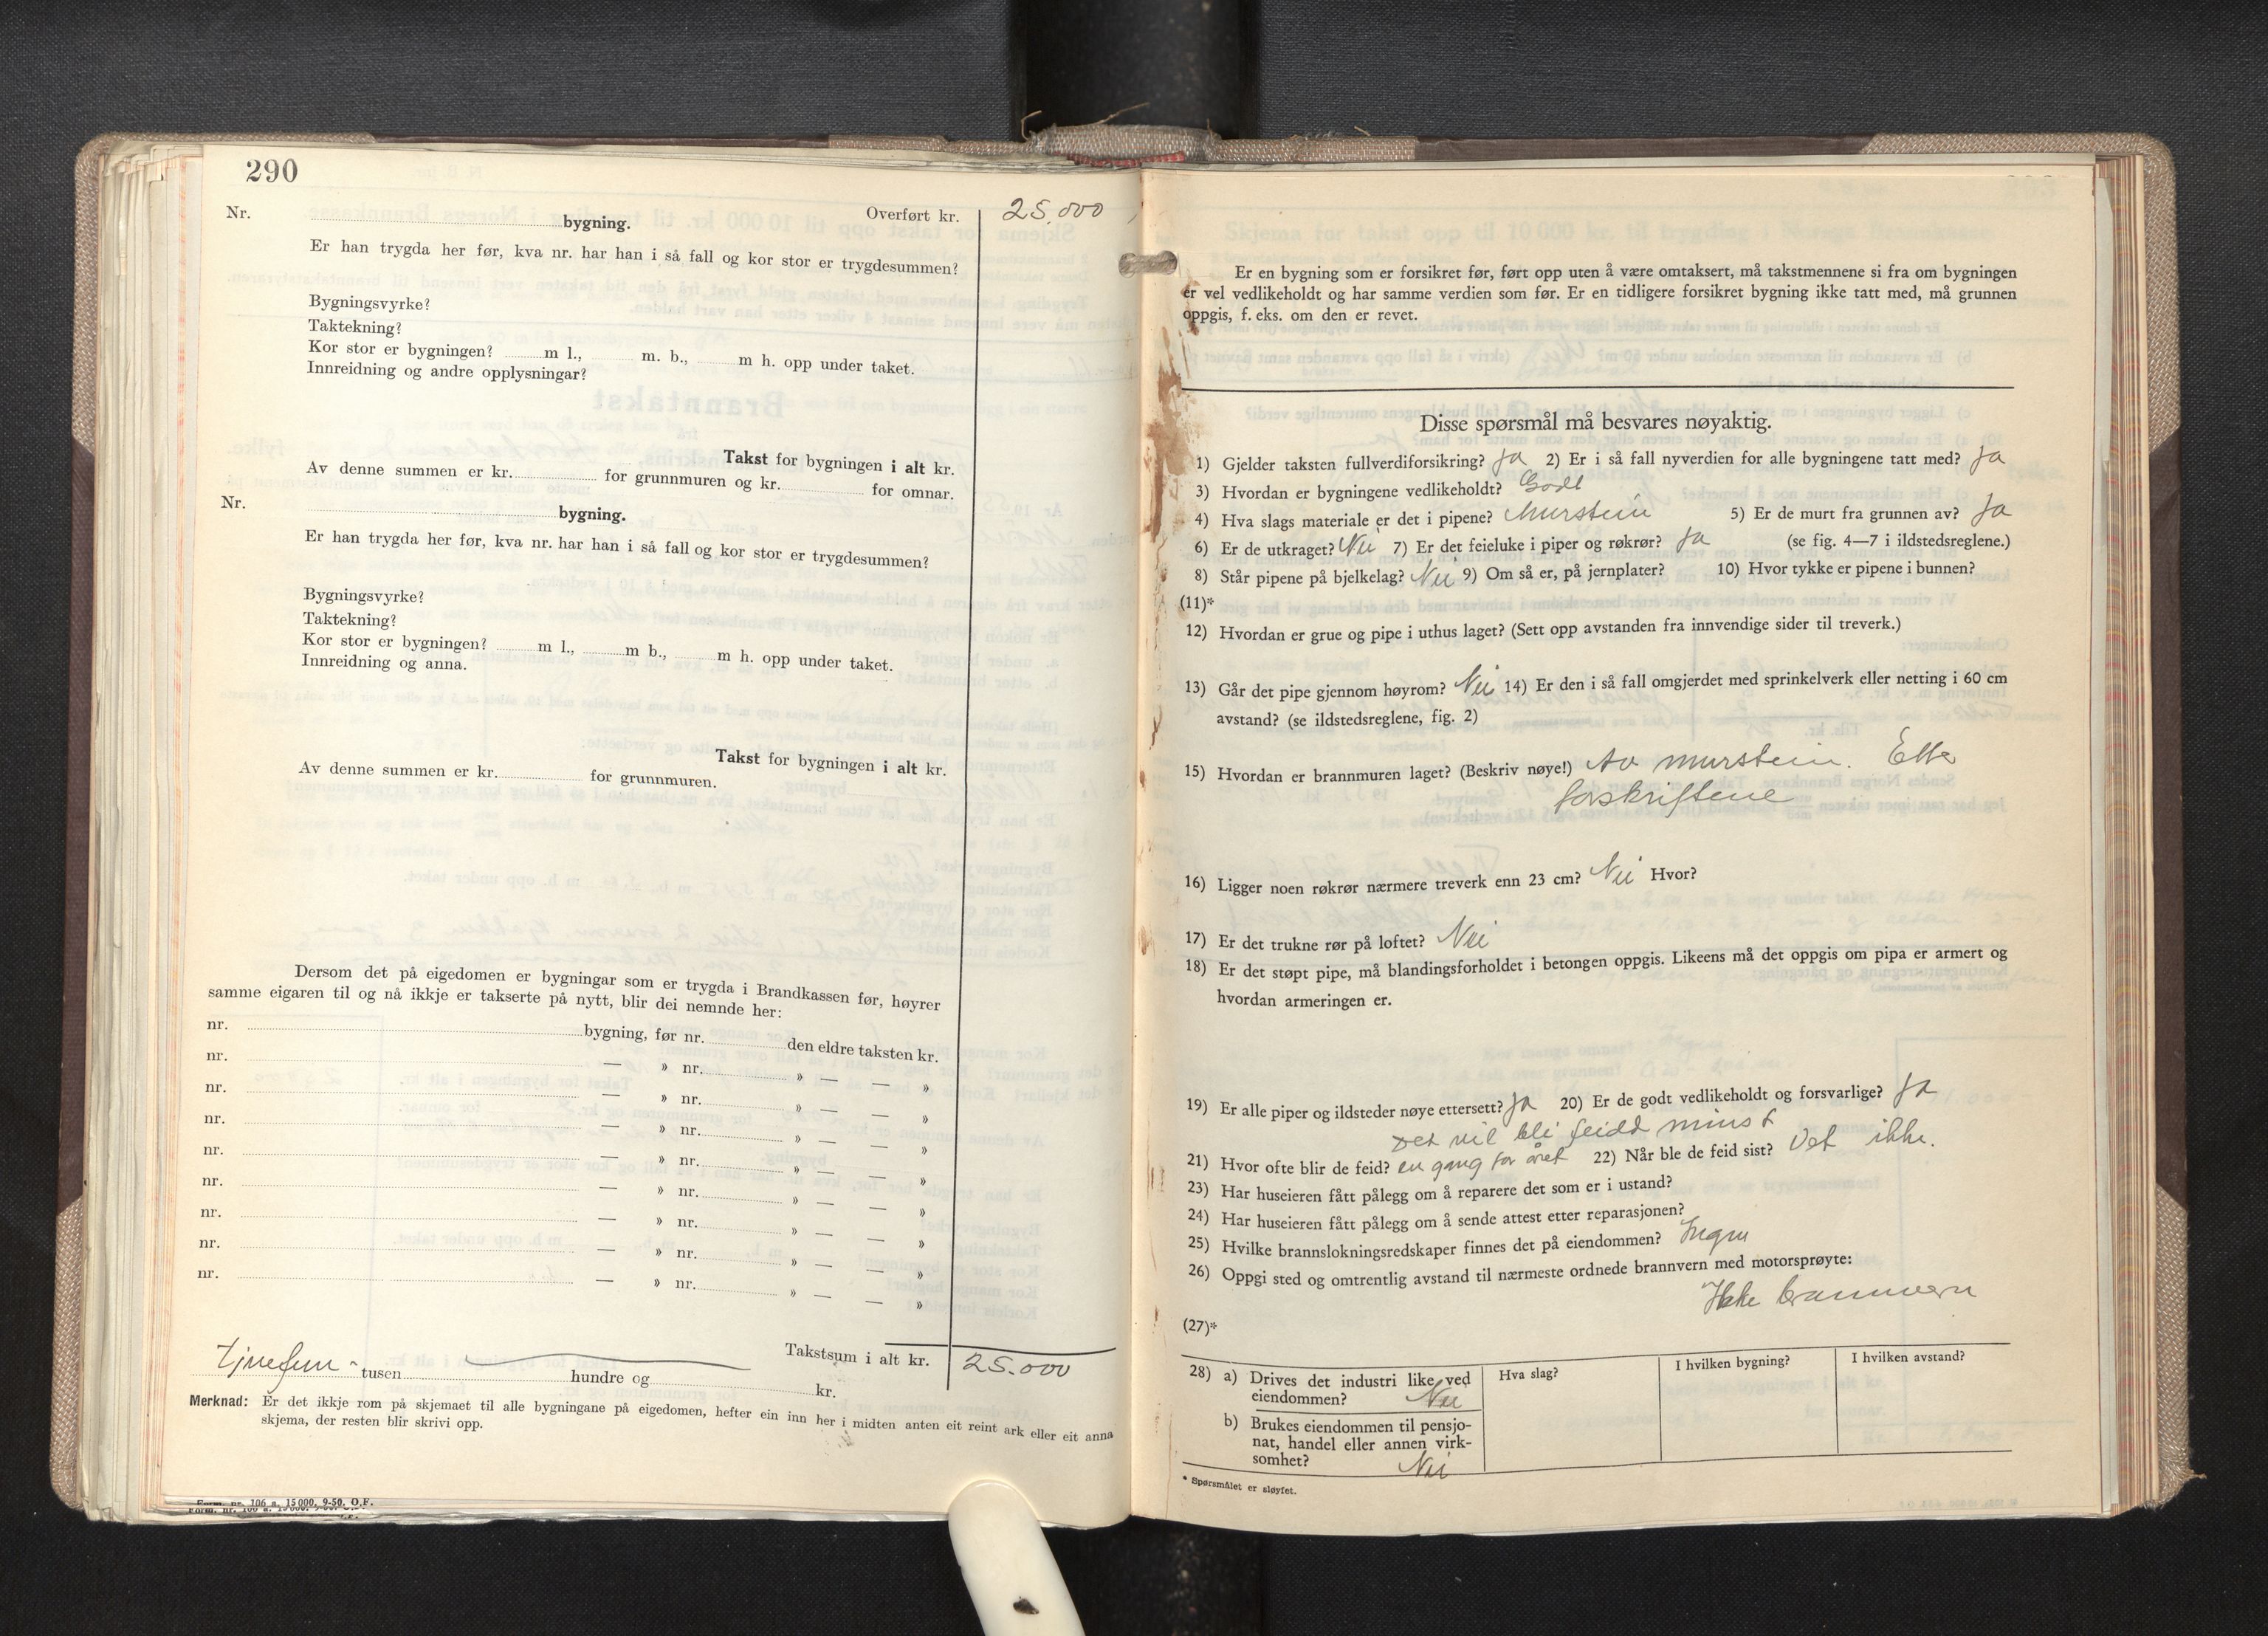 290
Nr. bygning. Overført kr. 25.000
Er han trygda her før, kva nr. har han i så fall og kor stor er trygdesummen?
Bygningsvyrke?
Taktekning?
Kor stor er bygningen? m l., m. b., m h. opp under taket.
Innreidning og andre opplysningar?
Takst for bygningen i alt kr.
Av denne summen er kr. for grunnmuren og kr. for omnar.
Nr. bygning.
Er han trygda her før, kva nr. har han i så fall og kor stor er trygdesummen?
Bygningsvyrke?
Taktekning?
Kor stor er bygningen? m l., m b., m h. opp under taket.
Innreidning og anna.
Takst for bygningen i alt kr.
Av denne summen er kr. for grunnmuren.
Dersom det på eigedomen er bygningar som er trygda i Brandkassen før, høyrer
samme eigaren til og nå ikkje er takserte på nytt, blir dei nemnde her:
nr. bygning, før nr. den eldre taksten kr.
nr. — » nr. » — — »
nr. — » nr. » — — »
nr. — » nr. » — — »
nr. — » nr. » — — »
nr. — » nr. » — — »
nr. — » nr. » — — »
nr. — » nr. » — — »
nr. — » nr. » — — »
Takstsum i alt kr. 25.000
Tjuefem - tusen hundre og kr.
Merknad: Er det ikkje rom på skjemaet til alle bygningane på eigedomen, hefter ein inn her i midten anten eit reint ark eller eit anna
skjema, der resten blir skrivi opp.
Form. nr. 106 a. 15 000. 9-50. O.F.
Er en bygning som er forsikret før, ført opp uten å være omtaksert, må takstmennene si fra om bygningen
er vel vedlikeholdt og har samme verdien som før. Er en tidligere forsikret bygning ikke tatt med, må grunnen
oppgis, f. eks. om den er revet.
Disse spørsmål må besvares nøyaktig.
1) Gjelder taksten fullverdiforsikring? Ja 2) Er i så fall nyverdien for alle bygningene tatt med? Ja
3) Hvordan er bygningene vedlikeholdt? Godt
4) Hva slags materiale er det i pipene? Murstein 5) Er de murt fra grunnen av? Ja
6) Er de utkraget? Nei 7) Er det feieluke i piper og røkrør? Ja (se fig. 4—7 i ildstedsreglene.)
8) Står pipene på bjelkelag? Nei 9) Om så er, på jernplater? 10) Hvor tykke er pipene i bunnen?
(11)*
12) Hvordan er grue og pipe i uthus laget? (Sett opp avstanden fra innvendige sider til treverk.)
13) Går det pipe gjennom høyrom? Nei 14) Er den i så fall omgjerdet med sprinkelverk eller netting i 60 cm
avstand? (se ildstedsreglene, fig. 2)
15) Hvordan er brannmuren laget? (Beskriv nøye!) Av murstein. Etter
forskriftene
16) Ligger noen røkrør nærmere treverk enn 23 cm? Nei Hvor?
17) Er det trukne rør på loftet? Nei
18) Er det støpt pipe, må blandingsforholdet i betongen oppgis. Likeens må det oppgis om pipa er armert og
hvordan armeringen er.
19) Er alle piper og ildsteder nøye ettersett? Ja 20) Er de godt vedlikeholdt og forsvarlige? Ja
Det vil bli feidd minst
21) Hvor ofte blir de feid? en gang for året 22) Når ble de feid sist? Vet ikke.
23) Har huseieren fått pålegg om å reparere det som er i ustand?
24) Har huseieren fått pålegg om å sende attest etter reparasjonen?
25) Hvilke brannslokningsredskaper finnes det på eiendommen? Ingen
26) Oppgi sted og omtrentlig avstand til nærmeste ordnede brannvern med motorsprøyte:
Ikke brannvern
(27)*
28) a) Drives det industri like ved Hva slag? I hvilken bygning? I hvilken avstand?
eiendommen? Nei
b) Brukes eiendommen til pensjo-
nat, handel eller annen virk-
somhet? Nei
* Spørsmålet er sløyfet.